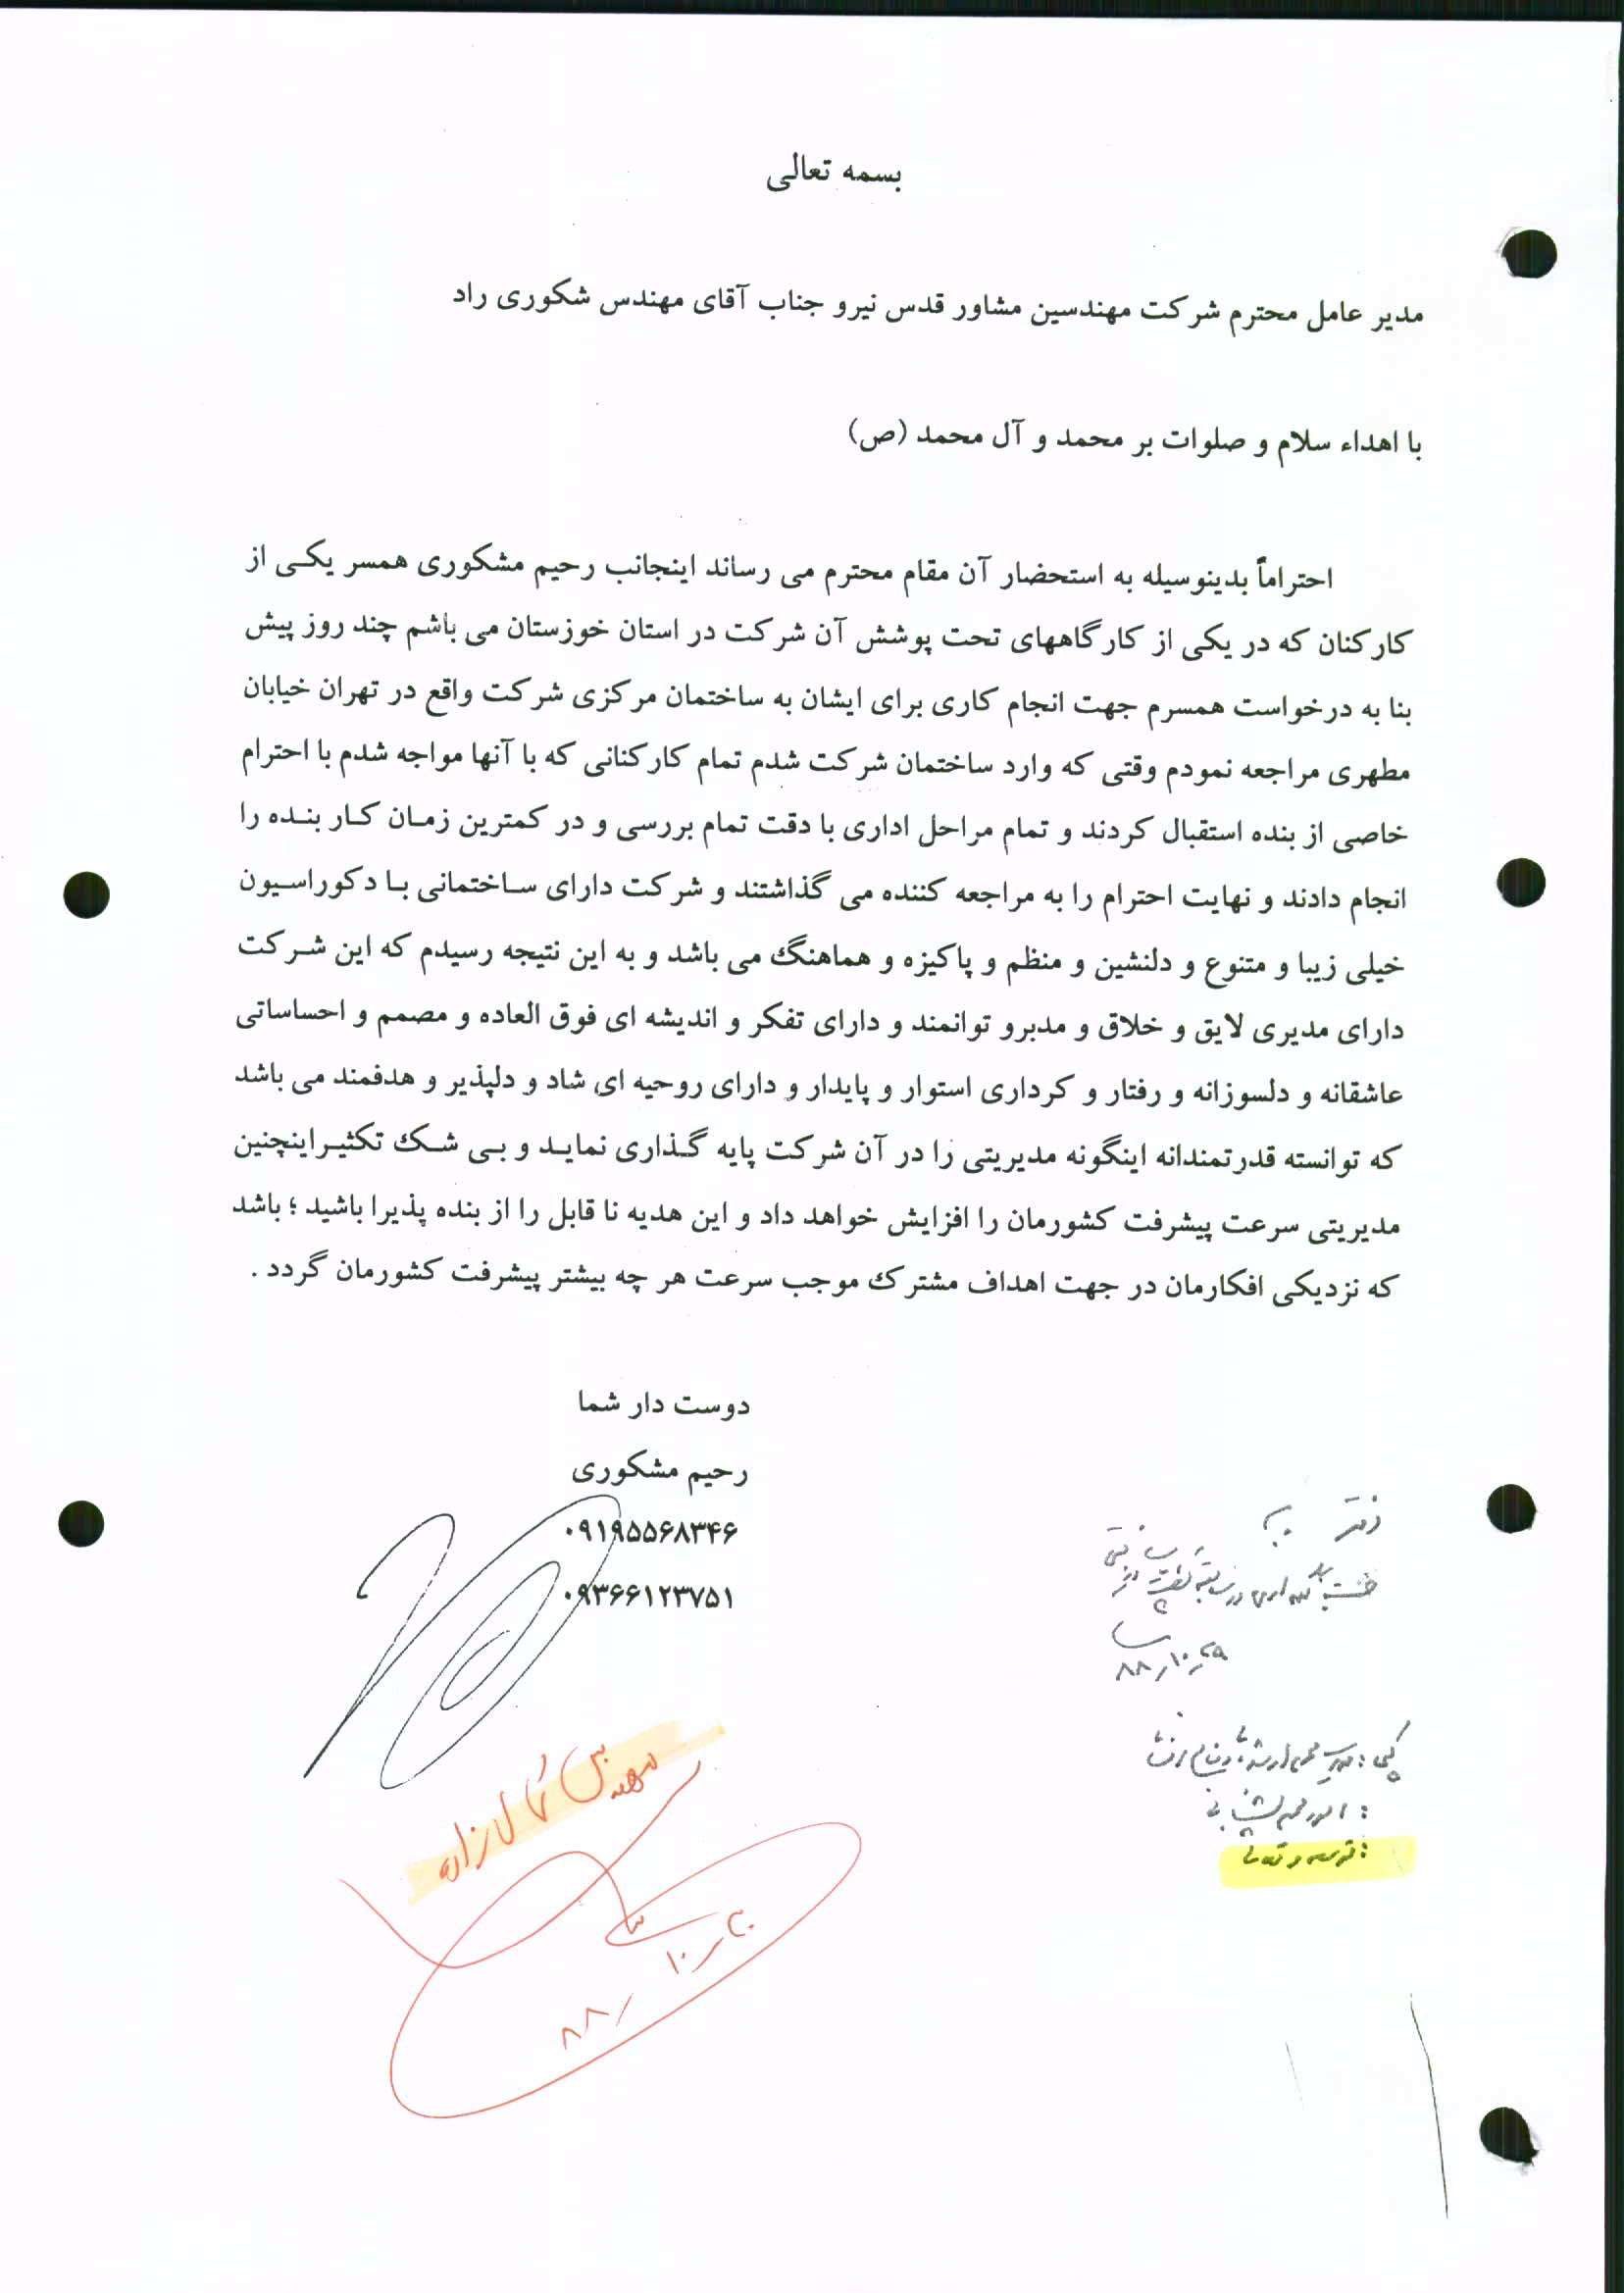 بسمه تعالی
مدیر عامل محترم شرکت مهندسین مشاور قدس نیرو جناب آقای مهندس شکوری راد
با اهداء سلام و صلوات بر محمد و آل محمد (ص)
احتراماً بدینوسیله به استحضار آن مقام محترم می رساند اینجانب رحیم مشکوری همسر یکی از
کارکنان که در یکی از کارگاههای تحت پوشش آن شرکت در استان خوزستان می باشم چند روز پیش
بنا به درخواست همسرم جهت انجام کاری برای ایشان به ساختمان مرکزی شرکت واقع در تهران خیابان
مطهری مراجعه نمودم وقتی که وارد ساختمان شرکت شدم تمام کارکنانی که با آنها مواجه شدم با احترام
خاصی از بنده استقبال کردند و تمام مراحل اداری با دقت تمام بررسی و در کمترین زمان کار بنده را
انجام دادند و نهایت احترام را به مراجعه کننده می گذاشتند و شرکت دارای ساختمانی با دکوراسیون
خیلی زیبا و متنوع و دلنشین و منظم و پاکیزه و هماهنگ می باشد و به این نتیجه رسیدم که این شرکت
دارای مدیری لایق و خلاق و مدبرو توانمند و دارای تفکر و اندیشه ای فوق العاده و مصمم و احساساتی
عاشقانه و دلسوزانه و رفتار و کرداری استوار و پایدار و دارای روحیه ای شاد و دلپذیر و هدفمند می باشد
که توانسته قدرتمندانه اینگونه مدیریتی را در آن شرکت پایه گذاری نماید و بی شک تکثیراینچنین
مدیریتی سرعت پیشرفت کشورمان را افزایش خواهد داد و این هدیه نا قابل را از بنده پذیرا باشید ؛ باشد
که نزدیکی افکارمان در جهت اهداف مشترک موجب سرعت هر چه بیشتر پیشرفت کشورمان گردد .
دوست دار شما
رحیم مشکوری
۰۹۱۹۵۵۶۸۳۴۶
۰۹۳۶۶۱۲۳۷۵۱
دفتر
۸۸/۱۰/۲۹
کپی :
مهندس کمال زاده
۸۸/۱۰/۳۰